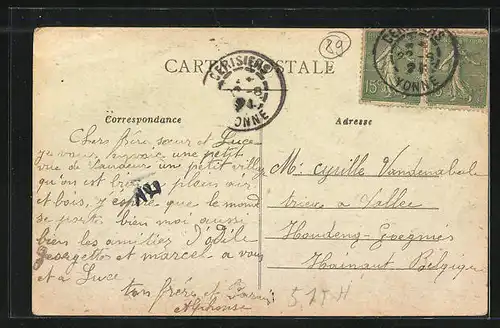 89
CARTE POSTALE
CERISIERS
YONNE
CERISIERS
YONNE
15c
Correspondance
Adresse
Chers frère sœur et Luce
je vous envoie une petit
vue de Vaudeurs un petit village
qu'on est bien plain air
et bois, j'espère que le monde
se porte bien moi aussi
bien les amitiez d'Odile
Georgettes et marcel a vous
et a Luce
ton frère et
Alphonse
Mr Cyrille Vandenabeele
a Vallee
Houdeng-Goegnies
Hainaut Belgique